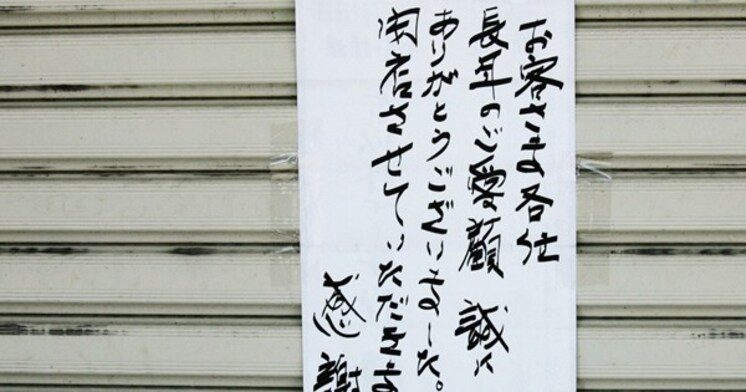 お客さま各位
長年のご愛顧 誠に
ありがとうございました。
閉店させていただきま
感謝